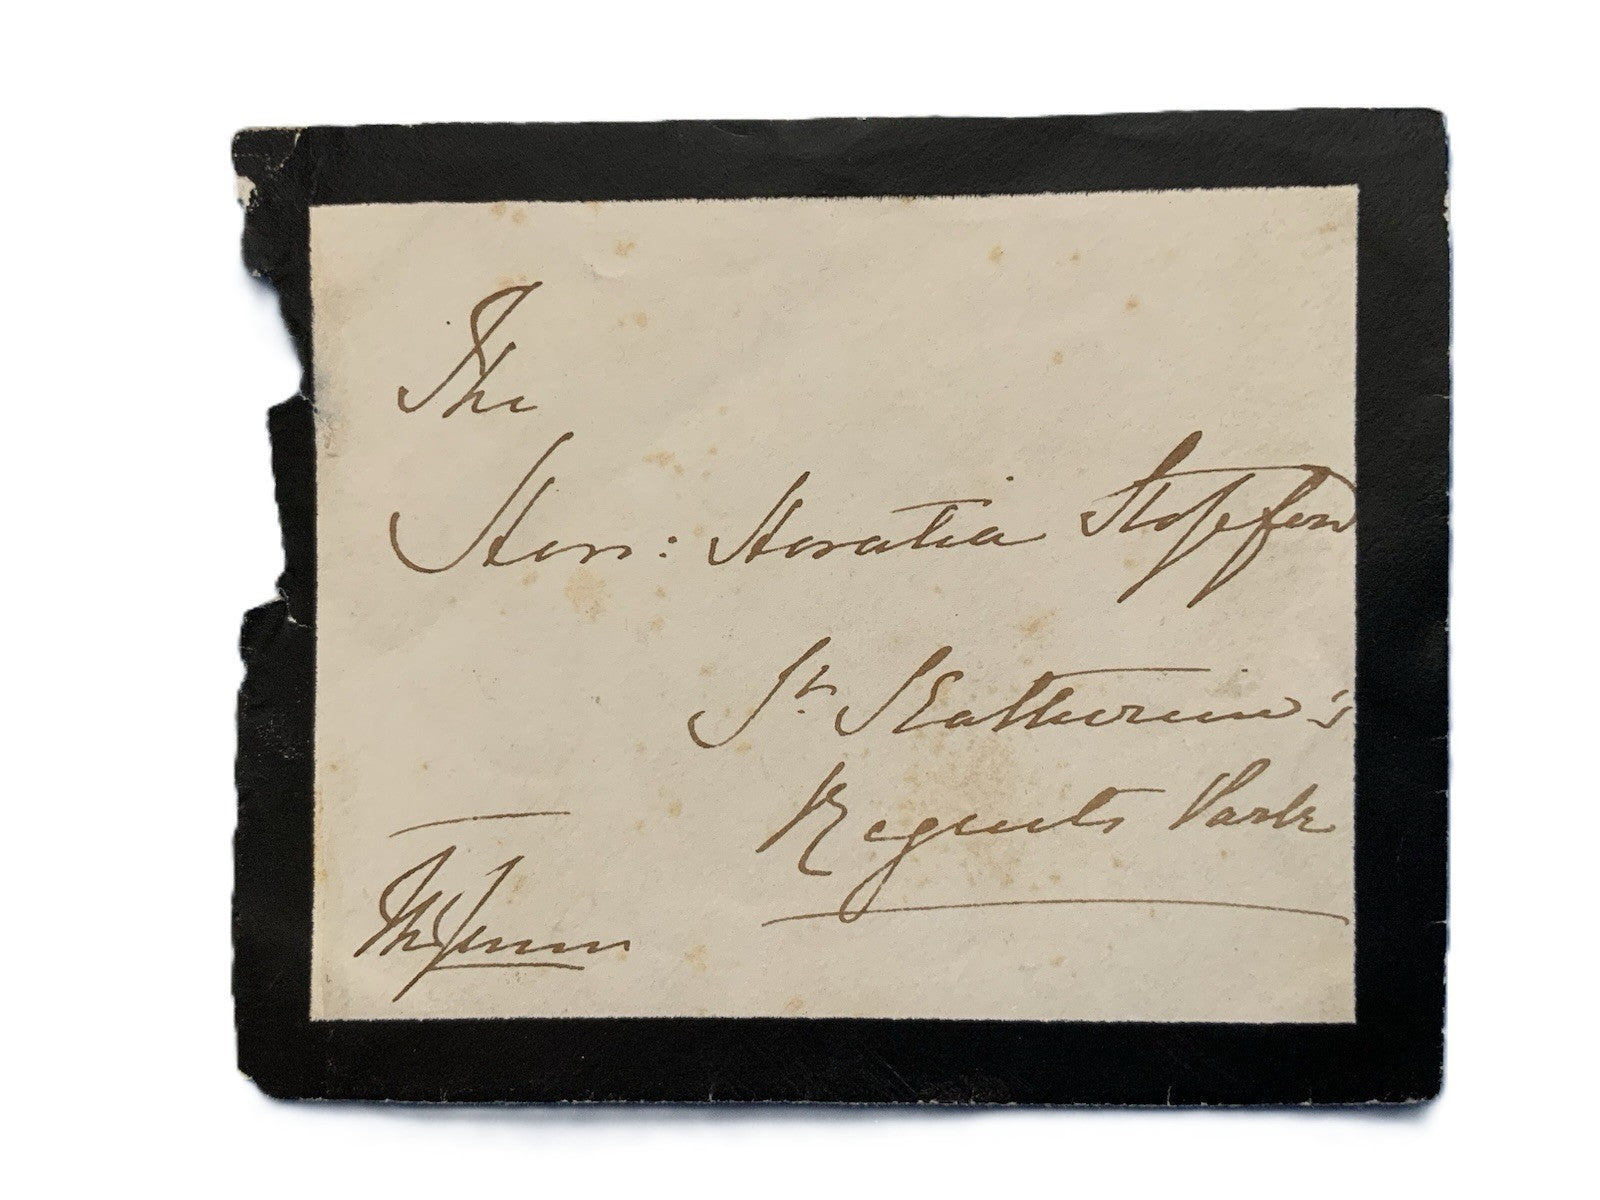 The
Hon: Horatia Stopford
St Katherine's
Regents Park